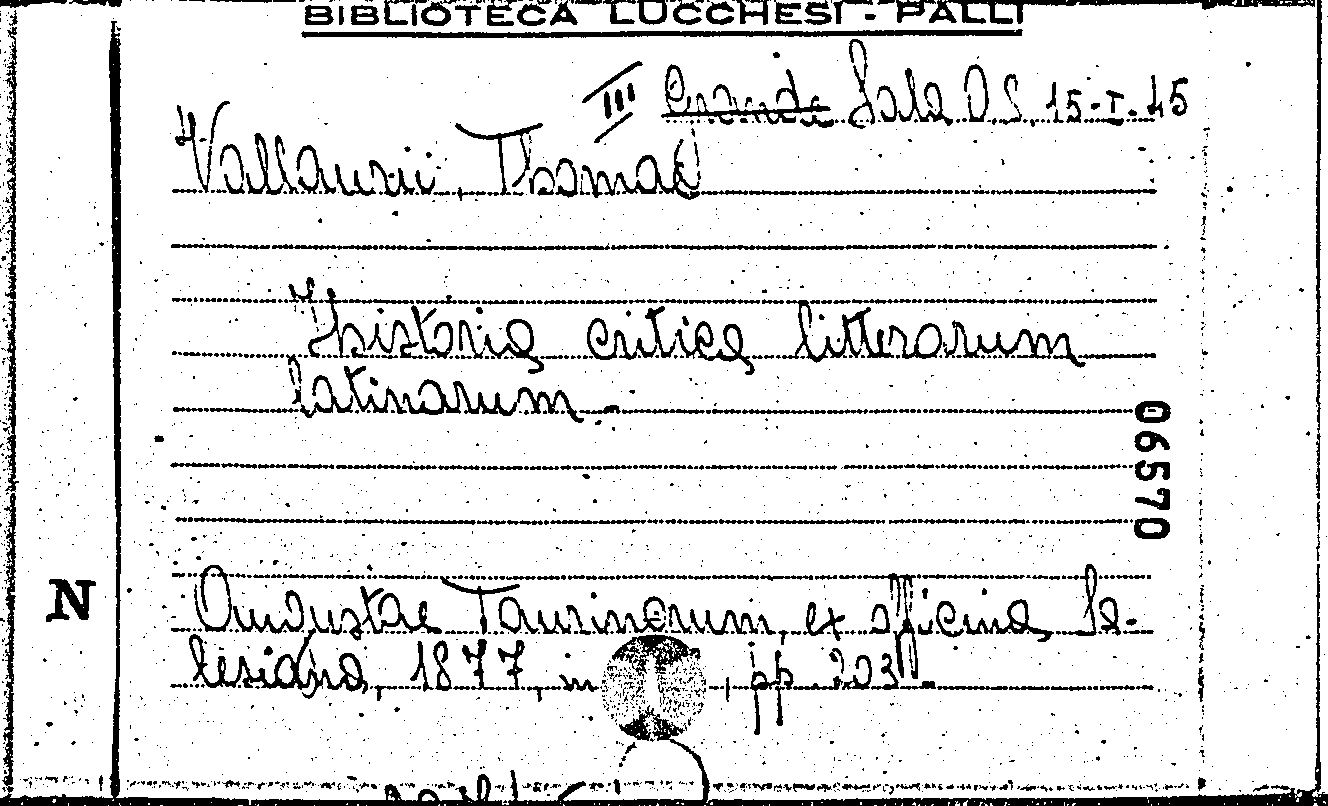 BIBLIOTECA LUCCHESI - PALLI
III Grande Sala D.S. 15-I.45
Vallaurii, Thomae
Historia critica litterarum
latinarum.
06570
N
Augustae Taurinorum, ex officina Sa-
lesiana, 1877, in , pp. 203.